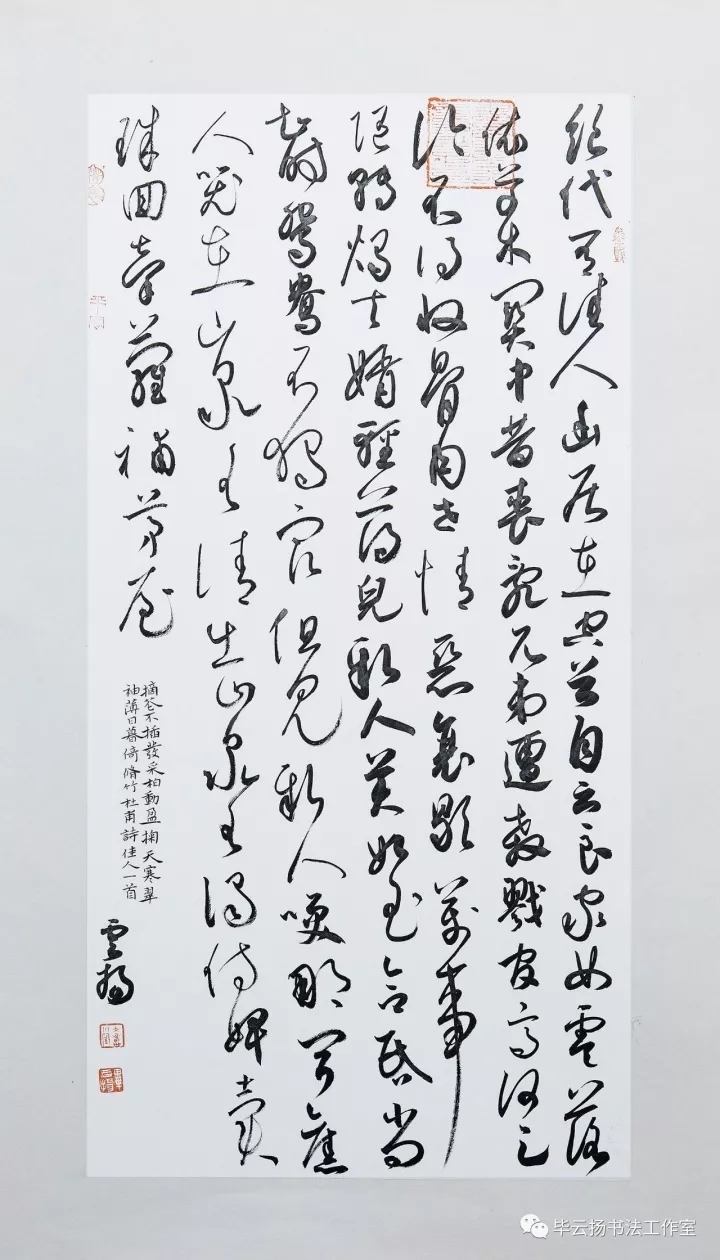 絕代有佳人幽居在空谷自云良家女零落
依草木關中昔喪亂兄弟遭殺戮官高何足
論不得收骨肉世情惡衰歇萬事
隨轉燭夫婿輕薄兒新人美如玉合昏尚
知時鴛鴦不獨宿但見新人笑那聞舊
人哭在山泉水清出山泉水濁侍婢賣
珠回牽蘿補茅屋
摘花不插發采柏動盈掬天寒翠
袖薄日暮倚脩竹杜甫詩佳人一首
雲揚
毕云扬书法工作室